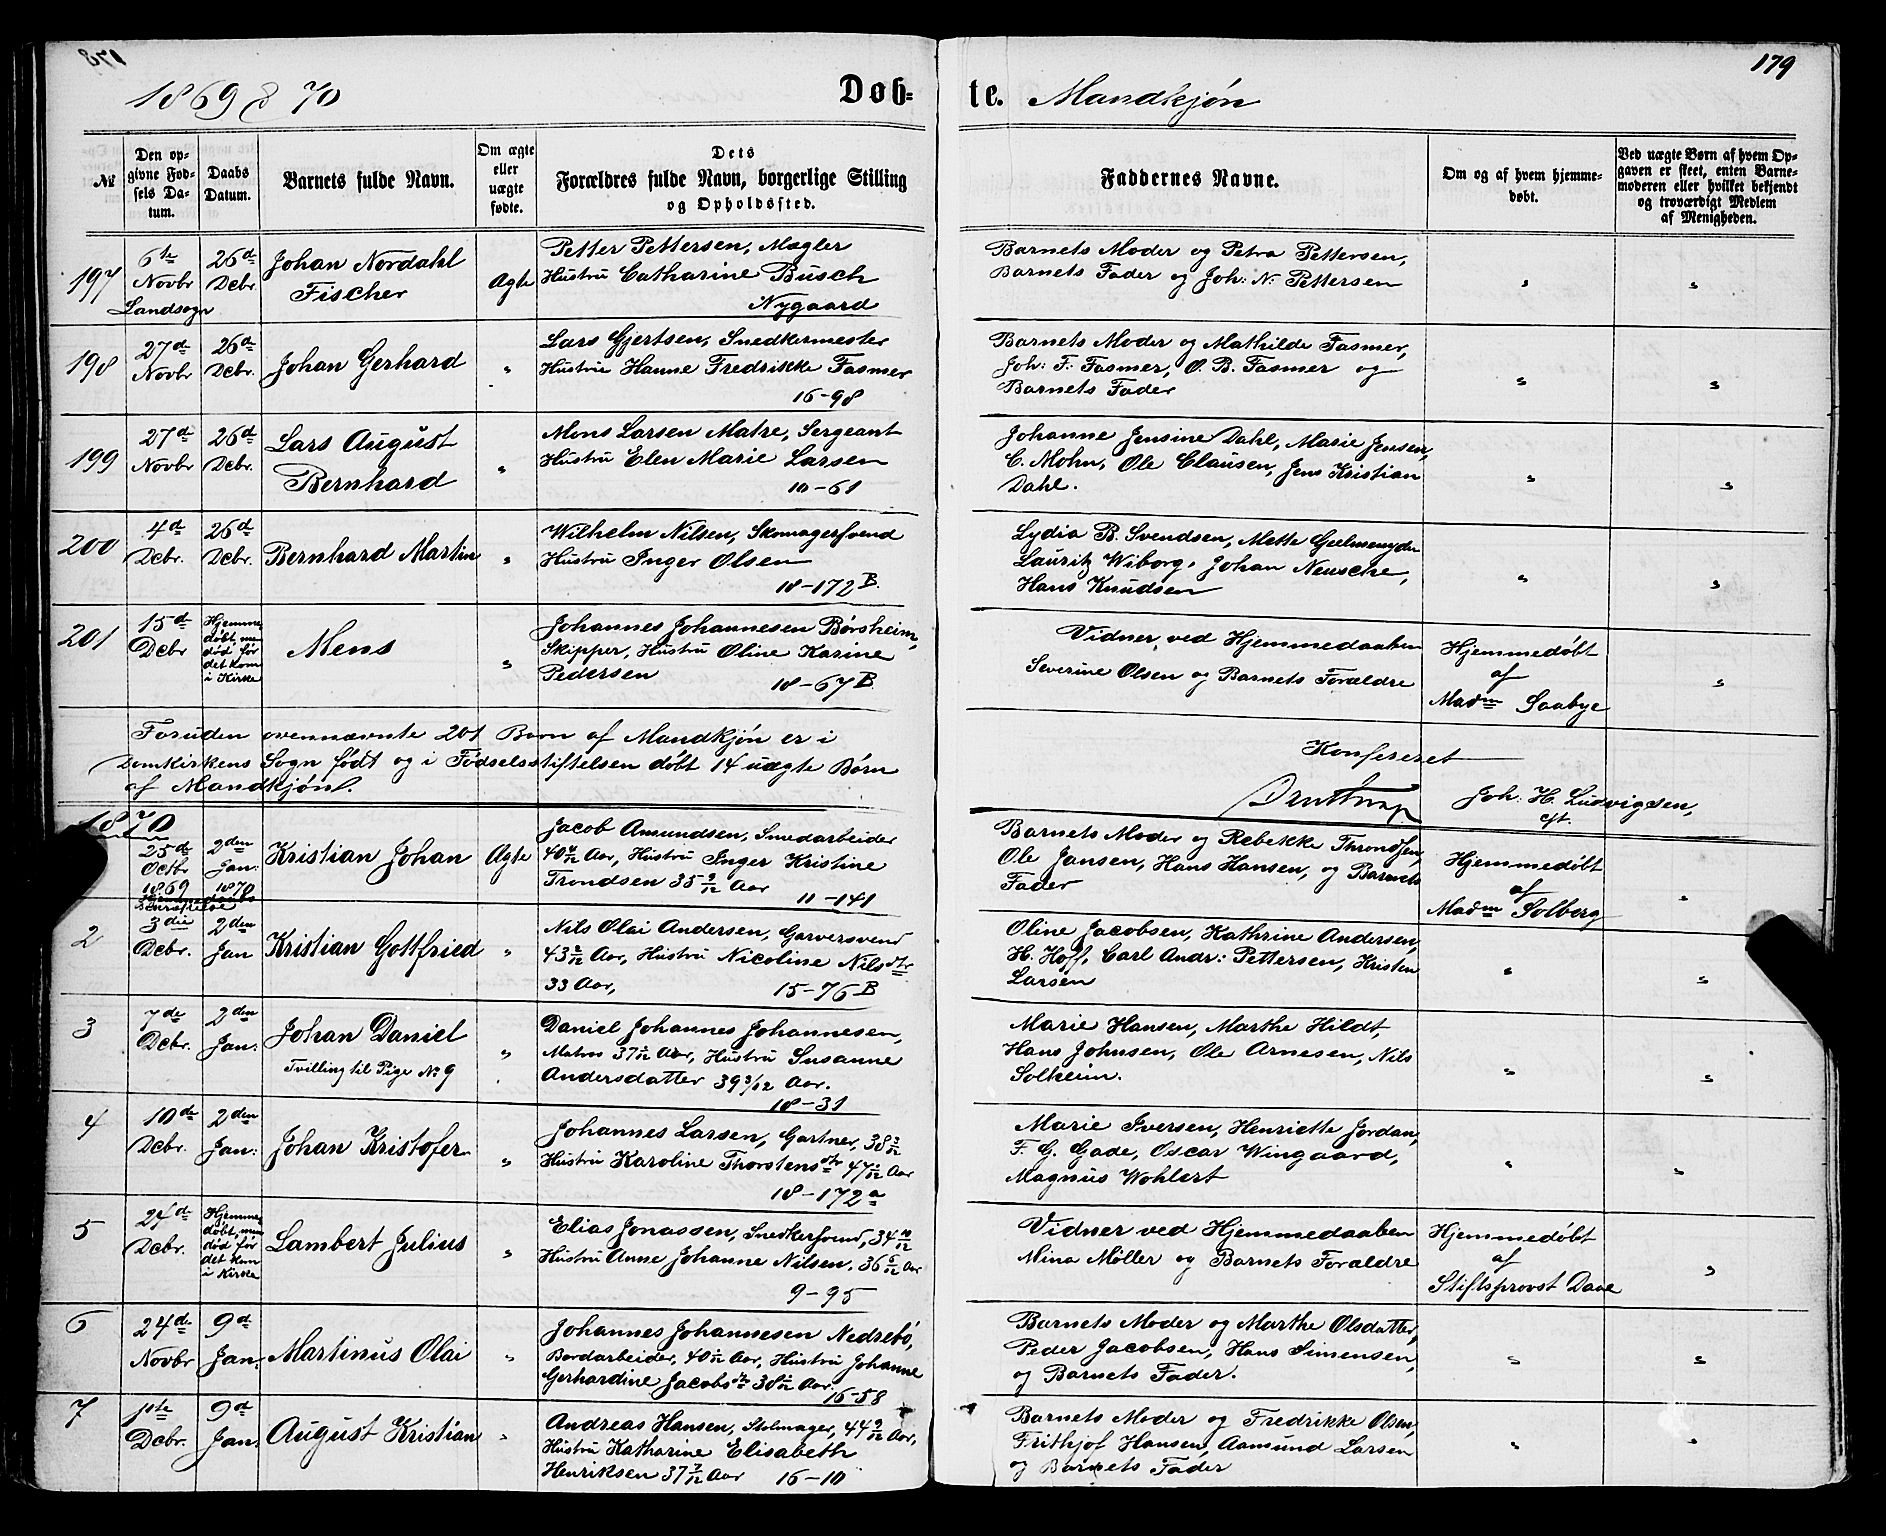 178
179
1869 & 70
Døb=
te. Mandkjøn
№
Den op-
givne Fød-
sels Da-
tum.
Daabs
Datum.
Barnets fulde Navn.
Om ægte
eller
uægte
fødte.
Dets
Forældres fulde Navn, borgerlige Stilling
og Opholdssted.
Faddernes Navne.
Om og af hvem hjemme-
døbt.
Ved uægte Børn af hvem Op-
gaven er skeet, enten Barne-
moderen eller hvilket bekjendt
og troværdigt Medlem
af Menigheden.
197
6te
Novbr
Landsogn
26de
Dcbr.
Johan Nordahl
Fischer
Ægte
Petter Pettersen, Mægler
Hustru Catharine Busch
Nygaard
Barnets Moder og Petra Pettersen,
Barnets Fader og Joh: N: Pettersen
"
"
198
27de
Novbr
26de
Dcbr.
Johan Gerhard
"
Lars Gjertsen, Snedkermester
Hustru Hanne Fredrikke Fasmer
16-98
Barnets Moder og Mathilde Fasmer,
Joh: F: Fasmer, O. B. Fasmer og
Barnets Fader
"
"
199
27de
Novbr
26de
Dcbr.
Lars August
Bernhard
"
Mons Larsen Matre, Sergeant
Hustru Elen Marie Larsen
10-61
Johanne Jensine Dahl, Marie Jensen,
C. Mohn, Ole Clausen, Jens Kristian
Dahl.
"
"
200
4de
Dcbr.
26de
Dcbr.
Bernhard Martin
"
Wilhelm Nilsen, Skomagersvend
Hustru Inger Olsen
18-172 B.
Lydia B. Svendsen, Mette Geelmuyden
Lauritz Wiborg, Johan Neusche,
Hans Knudsen
"
"
201
15de
Dcbr
Hjemme-
døbt, men
død før
det kom
i Kirke
Mens
"
Johannes Johannesen Børsheim,
Skipper, Hustru Oline Karine
Pedersen
18-67 B.
Vidner ved Hjemmedaaben
Severine Olsen og Barnets Forældre
Hjemmedøbt
af
Madm Saabye
"
Foruden ovennævnte 201 Børn af Mandkjøn er i
Domkirkens Sogn født og i Fødselsstiftelsen døbt 14 uægte Børn
af Mandkjøn.
Konfereret
Joh: H. Ludvigsen,
cft.
1870
25de
Octbr
1869
2den
Jan:
1870
Kristian Johan
Ægte
Jacob Amundsen, Smedarbeider
40 4/12 Aar, Hustru Inger Kristine
Trondsen 35 9/12 Aar
11-141
Barnets Moder og Rebekke Throndsen,
Ole Jansen, Hans Hansen, og Barnets
Fader
Hjemmedøbt
af
Madm Solberg
"
2
3die
Dcbr.
2den
Jan
Kristian Gottfried
"
Nils Olai Andersen, Garversvend
43 2/12 Aar, Hustru Nicoline Nilsdtr
33 Aar,
15-76 B
Oline Jacobsen, Kathrine Andersen,
H. Hoff, Carl Andr: Pettersen, Kristen
Larsen
"
"
3
7de
Dcbr.
2den
Jan:
Johan Daniel
Tvilling til Pige № 9
"
Daniel Johannes Johannesen,
Matros Aar, Hustru Susanne
Andersdatter 39 3/12 Aar.
18-31
Marie Hansen, Marthe Hildt,
Hans Johnsen, Ole Arnesen, Nils
Solheim.
"
"
4
10de
Dcbr.
2den
Jan:
Johan Kristofer
"
Johannes Larsen, Gartner,
Hustru Karoline Thorstensdtr Aar
18-172 a
Marie Iversen, Henriette Jordan,
F. G. Gade, Oscar Wingaard,
Magnus Wohlert
"
"
5
24de
Dcbr.
Hjemme-
døbt, men
død før
det kom
i Kirke
Lambert Julius
"
Elias Jonassen, Snedkersvend, 34 10/12
Hustru Anne Johanne Nilsen, 36 6/12 Aar
9-95
Vidner ved Hjemmedaaben
Mina Møller og Barnets Forældre
Hjemmedøbt
af
Stiftsprovst Daae
"
6
24de
Novbr
9de
Jan:
Martinus Olai
"
Johannes Johannesen Nedrebø,
Bordarbeider, Aar, Hustru Johanne
Gerhardine Jacobsdtr Aar
16-58
Barnets Moder og Marthe Olsdatter,
Peder Jacobsen, Hans Simensen,
og Barnets Fader.
"
"
7
1ste
Dcbr.
9de
Jan:
August Kristian
"
Andreas Hansen, Stolmager, 44 9/12 Aar,
Hustru Katharine Elisabeth
Henriksen 37 7/12 Aar 16-10
Barnets Moder og Fredrikke Olsen,
Frithjof Hansen, Aamund Larsen
og Barnets Fader
"
"